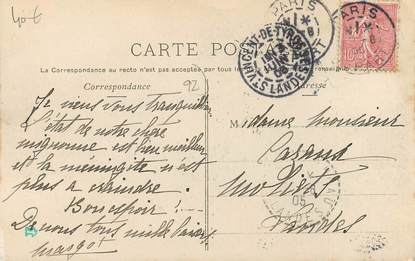 40 €
CARTE POS
La Correspondance au recto n'est pas acceptée par tous les
Correspondance
92
Adresse
PARIS
PARIS
ST VINCENT-DE-TYROSSE
LANDES
Je viens vous tranquilliser
l'état de notre chère
mignonne est bien meilleur
et la méningite n'est
plus à craindre.
Bon espoir!
De nous tous mille baisers
Margot
M
adame Monsieur
Moliets
Landes
05
LANDES